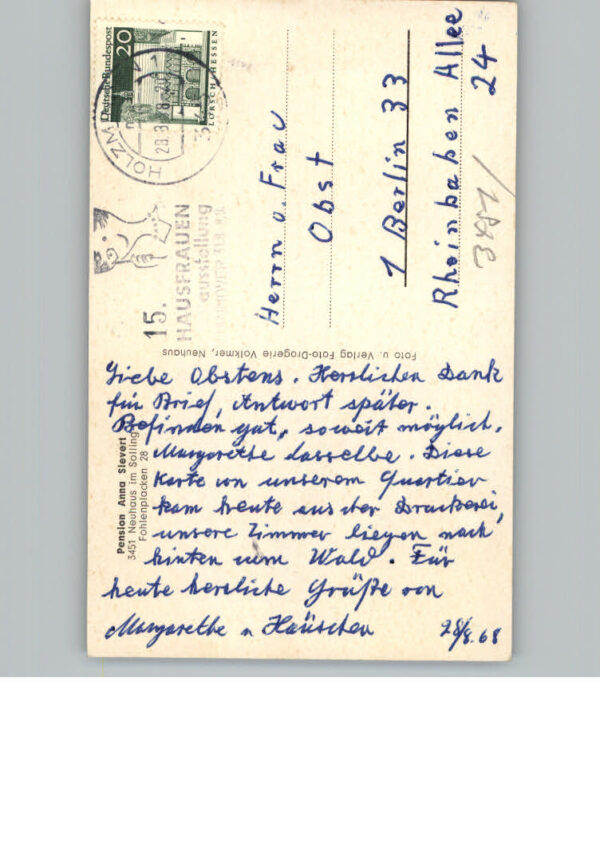 Deutsche Bundespost
20
LORSCH/HESSEN
HOLZM
28.8
15.
HAUSFRAUEN
ausstellung
Herrn u. Frau
Obst
1 Berlin 33
Rheinbaben Allee
24
Foto u. Verlag Foto-Drogerie Volkmer, Neuhaus
Pension Anna Sievert
3451 Neuhaus im Solling
Fohlenplacken 28
Liebe Obstens. Herzlichen Dank
für Brief, Antwort später.
Befinden gut, soweit möglich.
Margarethe dasselbe. Diese
Karte von unserem Quartier
kam heute aus der Druckerei,
unsere Zimmer liegen nach
hinten zum Wald. Für
heute herzliche Grüße von
Margarethe u Häuschen
28/8.68